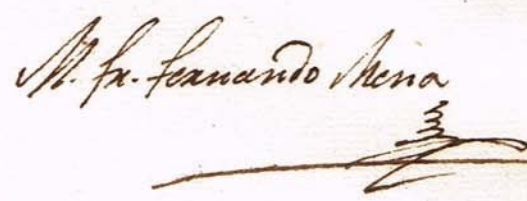 M. fr. fernando Mena